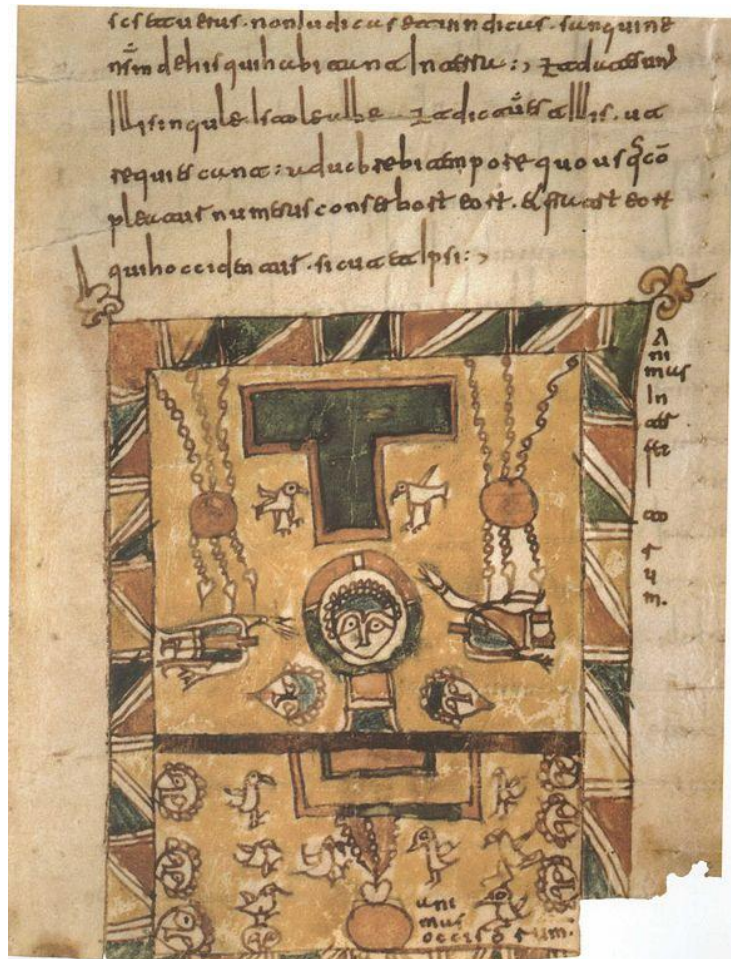 scs et uerus. non Iudicas et uindicas. sanguine
nsm de his qui habitant In terra :, et date sunt
Illis singule stole albe et dictum est Illis. ut
requiescant : aduc brebi tempore quousq cō
pleatur numerus conserbort eort. et fratrt eort
qui occidentur. sicut et Ipsi :,
A
ni
mas
In
ter
fec
to
r
u
m.
ani
mas
occisorum.